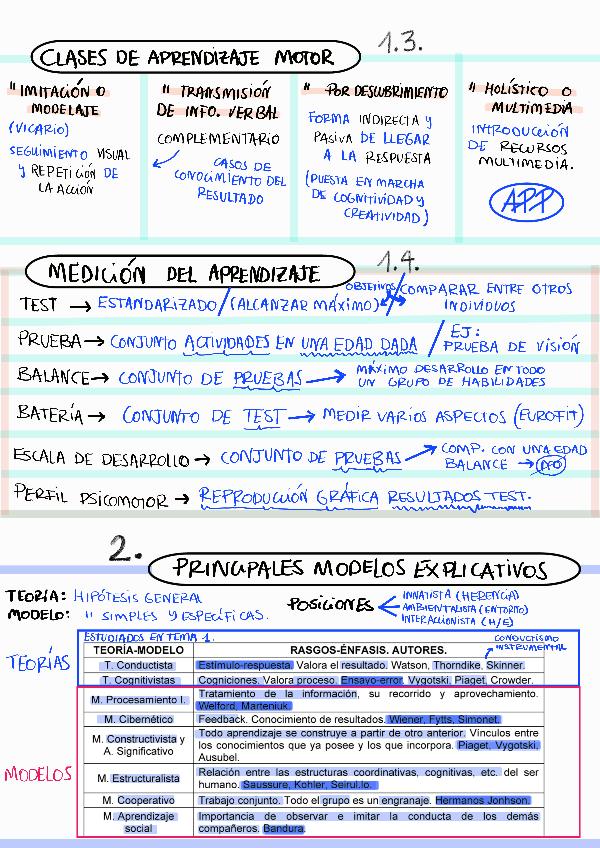 CLASES DE APRENDIZAJE MOTOR 1.3.
" IMITACIÓN O
MODELAJE
(VICARIO)
SEGUIMIENTO VISUAL
Y REPETICIÓN DE
LA ACCIÓN
" TRANSMISIÓN
DE INFO. VERBAL
COMPLEMENTARIO
CASOS DE
CONOCIMIENTO DEL
RESULTADO
" POR DESCUBRIMIENTO
FORMA INDIRECTA Y
PASIVA DE LLEGAR
A LA RESPUESTA
(PUESTA EN MARCHA
DE COGNITIVIDAD Y
CREATIVIDAD)
" HOLÍSTICO O
MULTIMEDIA
INTRODUCCIÓN
DE RECURSOS
MULTIMEDIA.
APP
MEDICIÓN DEL APRENDIZAJE 1.4.
TEST → ESTANDARIZADO / (ALCANZAR MÁXIMO) OBJETIVOS / COMPARAR ENTRE OTROS
INDIVIDUOS
PRUEBA → CONJUNTO ACTIVIDADES EN UNA EDAD DADA / EJ:
PRUEBA DE VISIÓN
BALANCE → CONJUNTO DE PRUEBAS → MÁXIMO DESARROLLO EN TODO
UN GRUPO DE HABILIDADES
BATERÍA → CONJUNTO DE TEST → MEDIR VARIOS ASPECTOS (EUROFIT)
ESCALA DE DESARROLLO → CONJUNTO DE PRUEBAS → COMP. CON UNA EDAD
BALANCE →
PERFIL PSICOMOTOR → REPRODUCCIÓN GRÁFICA RESULTADOS TEST.
2. PRINCIPALES MODELOS EXPLICATIVOS
TEORÍA: HIPÓTESIS GENERAL
MODELO: " SIMPLES Y ESPECÍFICAS.
POSICIONES
INNATISTA (HERENCIA)
AMBIENTALISTA (ENTORNO)
INTERACCIONISTA (H/E)
ESTUDIADOS EN TEMA 1.
CONDUCTISMO
INSTRUMENTAL
TEORÍAS
TEORÍA-MODELO RASGOS-ÉNFASIS. AUTORES.
T. Conductista Estímulo-respuesta. Valora el resultado. Watson, Thorndike, Skinner.
T. Cognitivistas Cogniciones. Valora proceso. Ensayo-error. Vygotski, Piaget, Crowder.
MODELOS
M. Procesamiento I. Tratamiento de la información, su recorrido y aprovechamiento.
Welford, Marteniuk.
M. Cibernético Feedback. Conocimiento de resultados. Wiener, Fytts, Simonet.
M. Constructivista y
A. Significativo
Todo aprendizaje se construye a partir de otro anterior. Vínculos entre
los conocimientos que ya posee y los que incorpora. Piaget, Vygotski,
Ausubel.
M. Estructuralista Relación entre las estructuras coordinativas, cognitivas, etc. del ser
humano. Saussure, Kohler, Seirul.lo.
M. Cooperativo Trabajo conjunto. Todo el grupo es un engranaje. Hermanos Jonhson.
M. Aprendizaje
social
Importancia de observar e imitar la conducta de los demás
compañeros. Bandura.